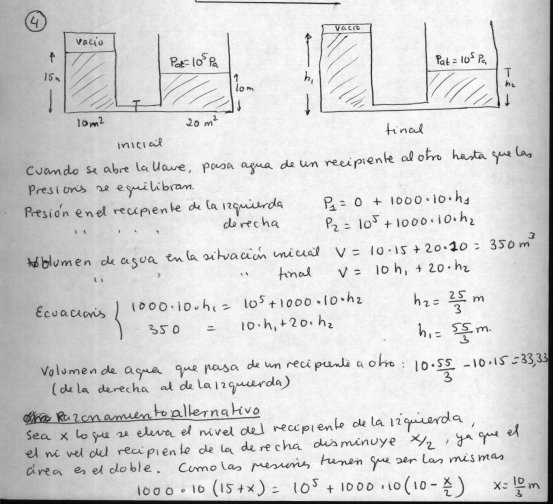 4
vacio
Pat=10⁵ Pa
15m
10m
T
10m²
20 m²
inicial
vacio
Pat=10⁵ Pa
h₁
h₂
final
Cuando se abre la llave, pasa agua de un recipiente al otro hasta que las
presions se equilibran
Presión en el recipiente de la izquierda P₁ = 0 + 1000·10·h₁
" " " derecha P₂ = 10⁵ + 1000·10·h₂
Volumen de agua en la situación inicial V = 10·15 + 20·10 = 350 m³
" " final V = 10 h₁ + 20·h₂
Ecuacions { 1000·10·h₁ = 10⁵ + 1000·10·h₂ h₂ = 25/3 m
350 = 10·h₁ + 20·h₂ h₁ = 55/3 m.
Volumen de agua que pasa de un recipiente a otro: 10·55/3 - 10·15 = 33,33
(de la derecha al de la izquierda)
Razonamiento alternativo
Sea x lo que se eleva el nivel del recipiente de la izquierda,
el nivel del recipiente de la derecha disminuye x/2, ya que el
área es el doble. Como las presions tienen que ser las mismas
1000·10 (15+x) = 10⁵ + 1000·10(10 - x/2) x = 10/3 m